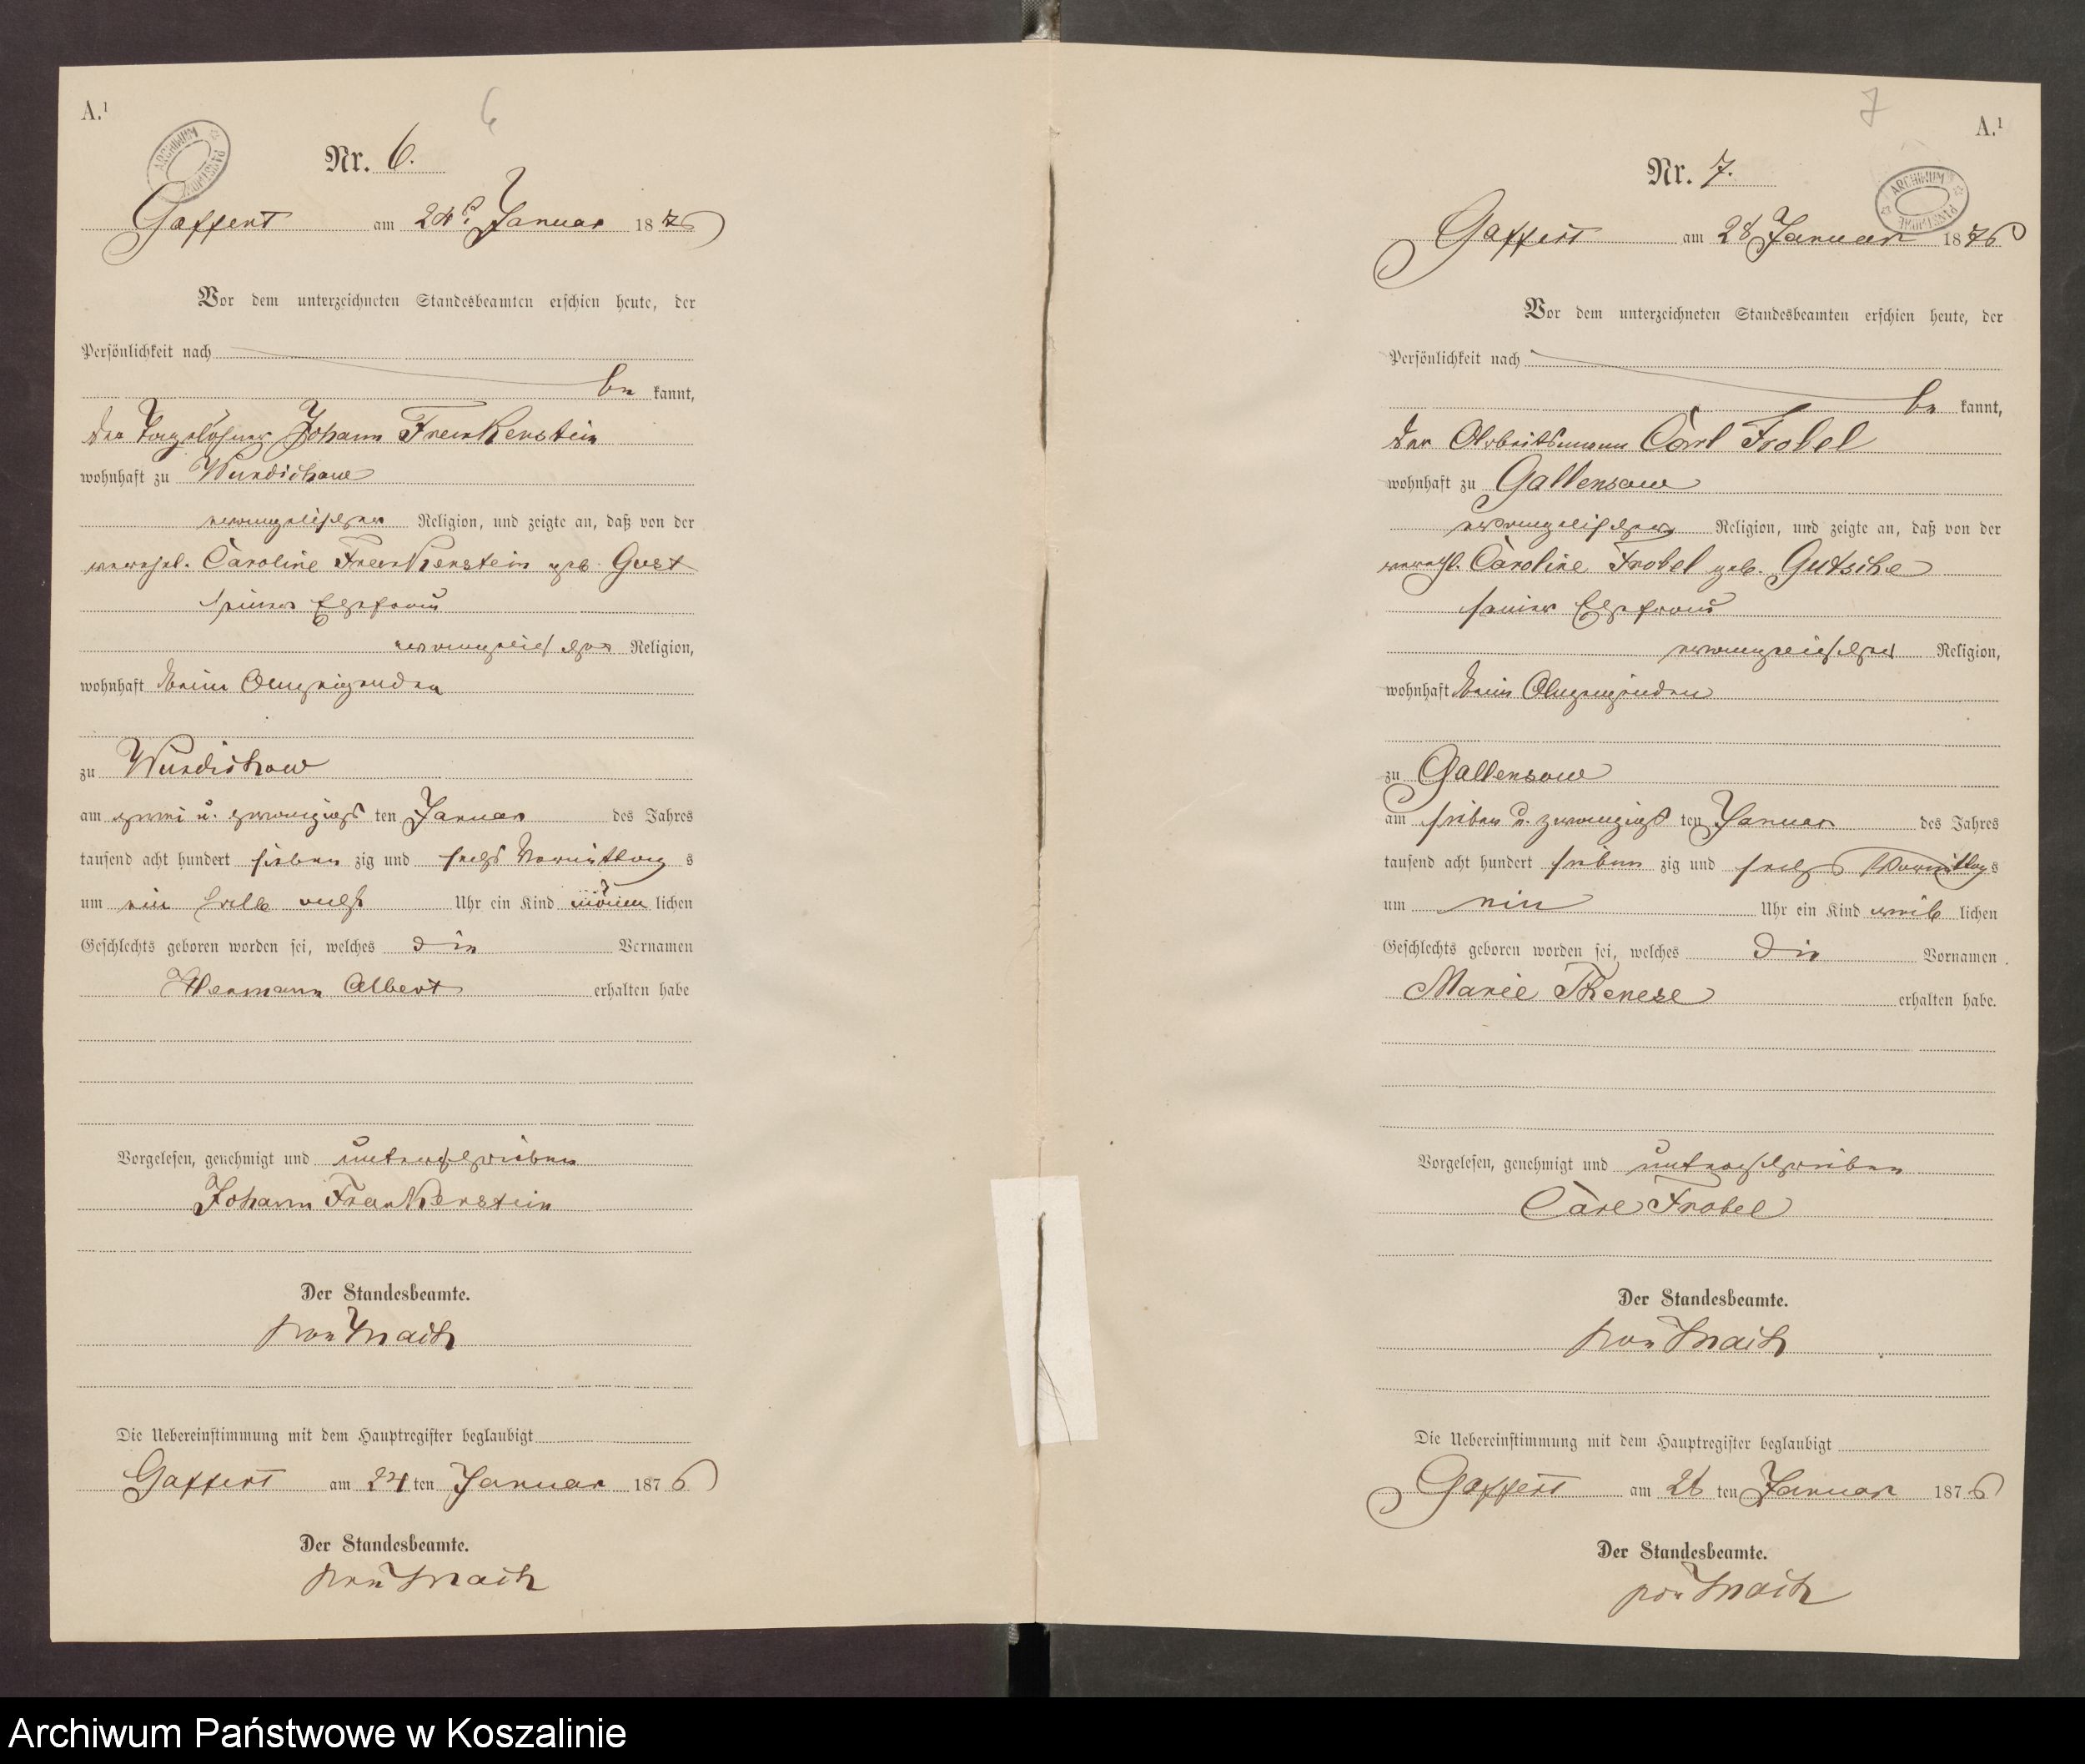 A.¹
6
ARCHIWUM PAŃSTWOWE
Nr. 6.
Gaffert am 24t Januar 1876
Vor dem unterzeichneten Standesbeamten erschien heute, der
Persönlichkeit nach
be kannt,
der Tagelöhner Johann Frankenstein
wohnhaft zu Wundichow
evangelischer Religion, und zeigte an, daß von der
verehel. Caroline Frankenstein geb. Gust
seiner Ehefrau
evangelischer Religion,
wohnhaft beim Anzeigenden
zu Wundichow
am zwei u. zwanzigst ten Januar des Jahres
tausend acht hundert sieben zig und sechs Vormittag s
um ein halb acht Uhr ein Kind männ lichen
Geschlechts geboren worden sei, welches die Vornamen
Hermann Albert erhalten habe
Vorgelesen, genehmigt und unterschrieben
Johann Frankenstein
Der Standesbeamte.
von
Die Uebereinstimmung mit dem Hauptregister beglaubigt
Gaffert am 24 ten Januar 1876
Der Standesbeamte.
von
7
A.¹
ARCHIWUM PAŃSTWOWE
Nr. 7.
Gaffert am 28 Januar 1876
Vor dem unterzeichneten Standesbeamten erschien heute, der
Persönlichkeit nach
be kannt,
der Arbeitsmann Carl Frobel
wohnhaft zu Gallensow
evangelischer Religion, und zeigte an, daß von der
verehl. Caroline Frobel geb. Gutsche
seiner Ehefrau
evangelischer Religion,
wohnhaft beim Anzeigenden
zu Gallensow
am sieben u. zwanzigst ten Januar des Jahres
tausend acht hundert sieben zig und sechs Vormittag s
um ein Uhr ein Kind weib lichen
Geschlechts geboren worden sei, welches die Vornamen
Marie Therese erhalten habe.
Vorgelesen, genehmigt und unterschrieben
Carl Frobel
Der Standesbeamte.
von
Die Uebereinstimmung mit dem Hauptregister beglaubigt
Gaffert am 28 ten Januar 1876
Der Standesbeamte.
von
Archiwum Państwowe w Koszalinie